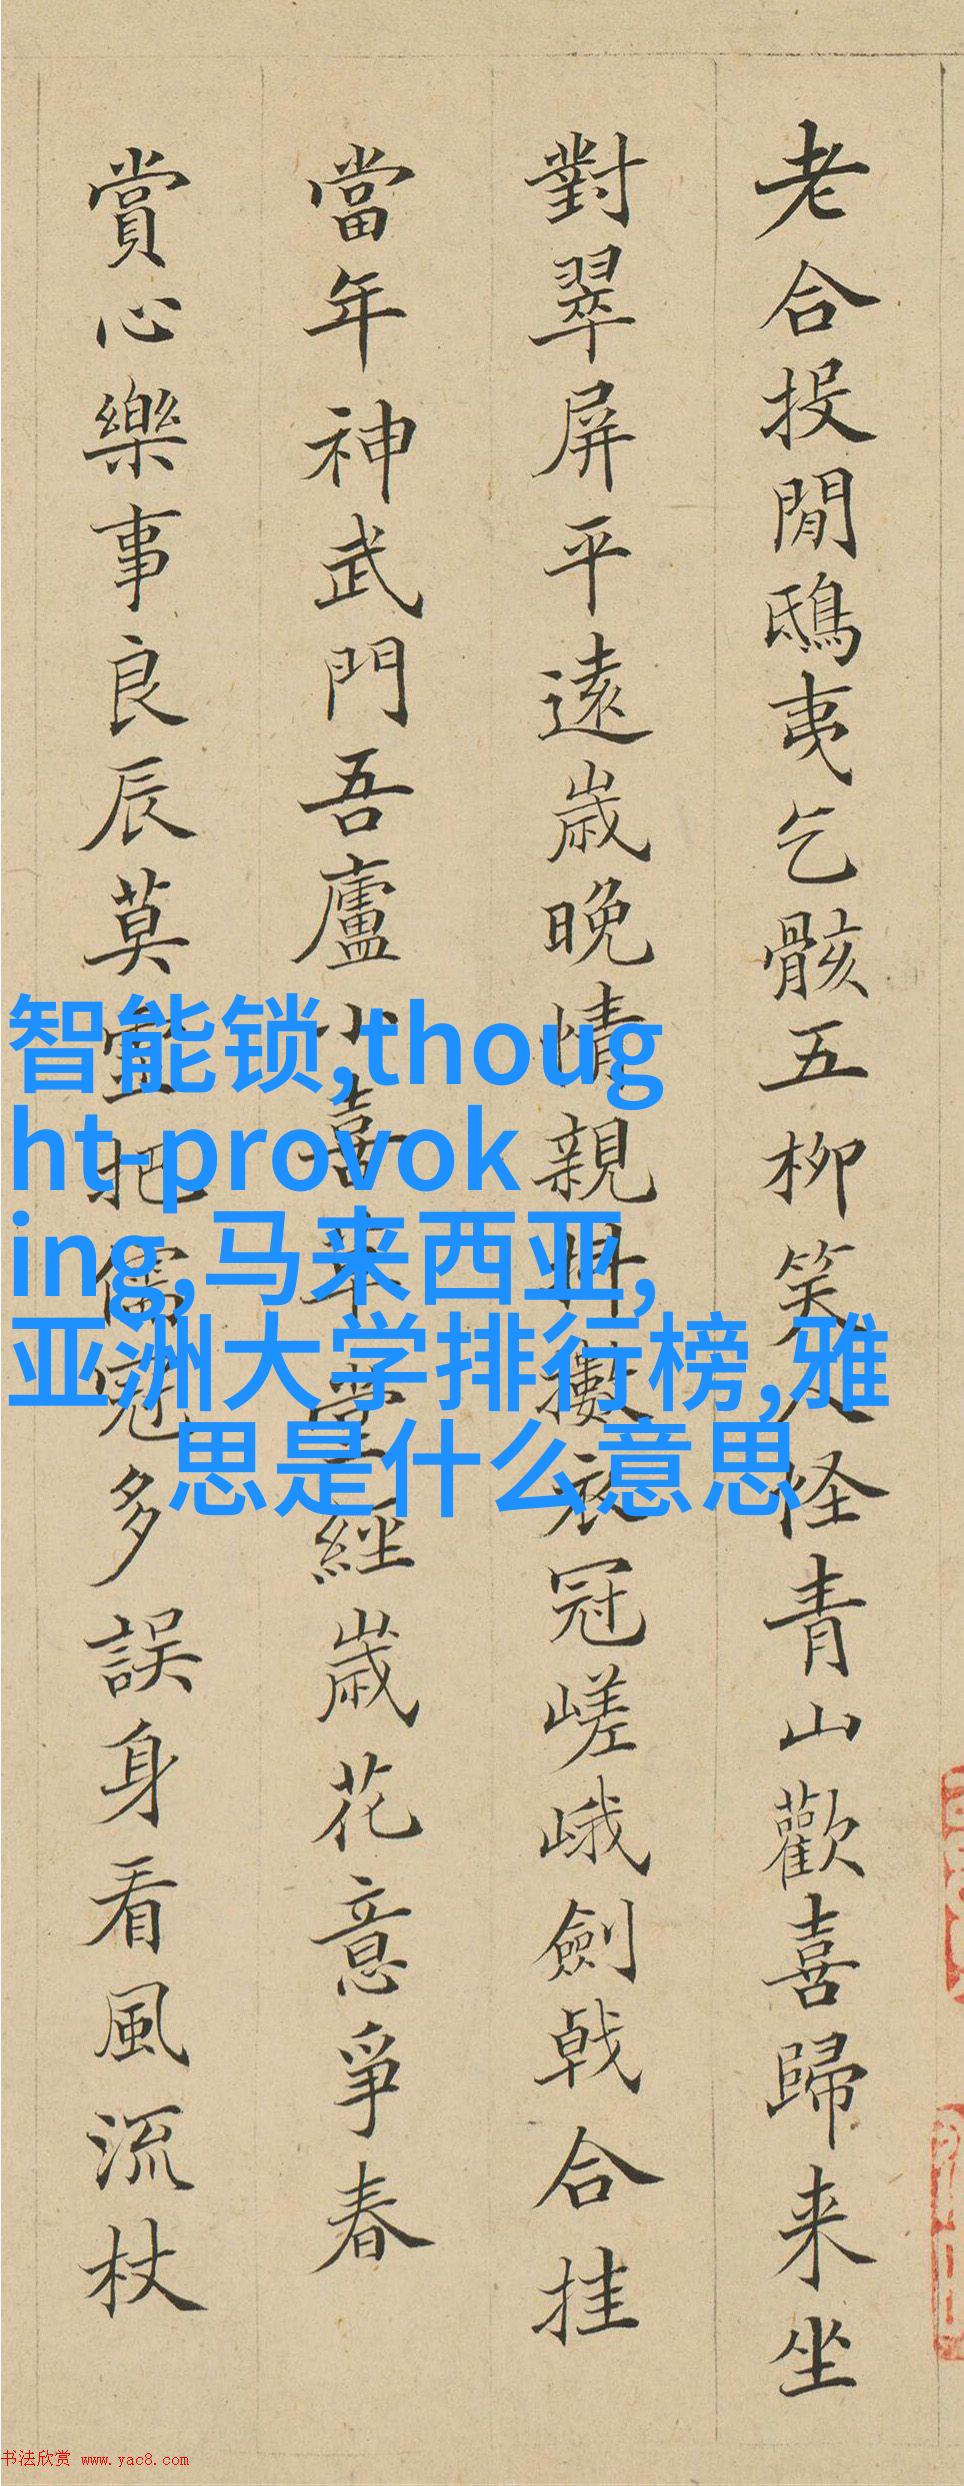 老合投閒鴟夷乞骸五柳笑人怪青山歡喜歸来坐
對翠屏平遠歲晚情親衣冠嵯峨劍戟合挂
當年神武門吾廬小喜堂經歲花意爭春
賞心樂事良辰莫把儒冠多誤身看風流杖
智能锁,thoug
ht-provok
ing,马来西亚,
亚洲大学排行榜,雅
思是什么意思
书法欣赏 www.yac8.com